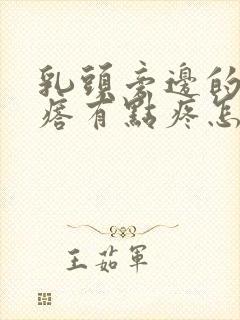 乳頭旁邊的
痞有點疼怎
王茹軍